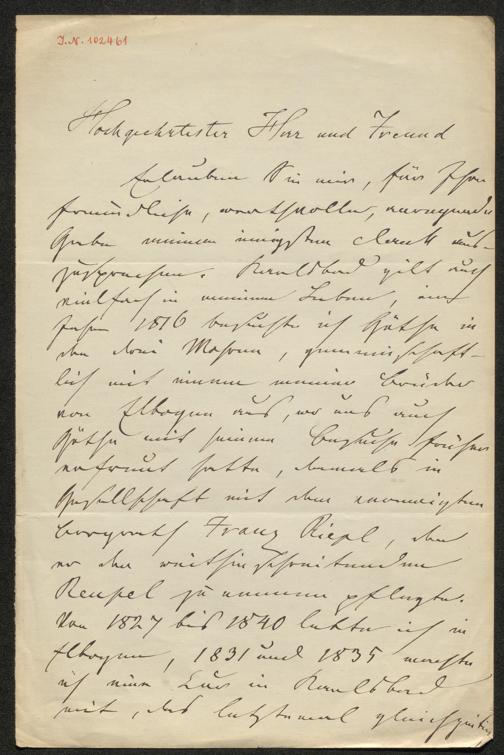 J.N. 102461
Hochgeehrtester Herr und Freund
Erlauben Sie mir, für Ihre
freundliche, werthvolle, anregende
Gabe meinen innigsten Dank aus-
zusprechen. Karlsbad gilt auch
vielfach in meinem Leben, im
Jahre 1816 besuchte ich Göthe in
den drei Mohren, gemeinschaft-
lich mit einem meiner Brüder
von Elbogen aus, wo uns auch
Göthe mit seinem Besuche früher
erfreut hatte, damals in
Gesellschaft mit dem
Bergrath Franz Riepl, den
er den weithinschreitenden
Rempel zu nennen pflegte.
Von 1827 bis 1840 lebte ich in
Elbogen, 1831 und 1835 machte
ich eine Cur in Karlsbad
mit, das letztemal gleichzeitig